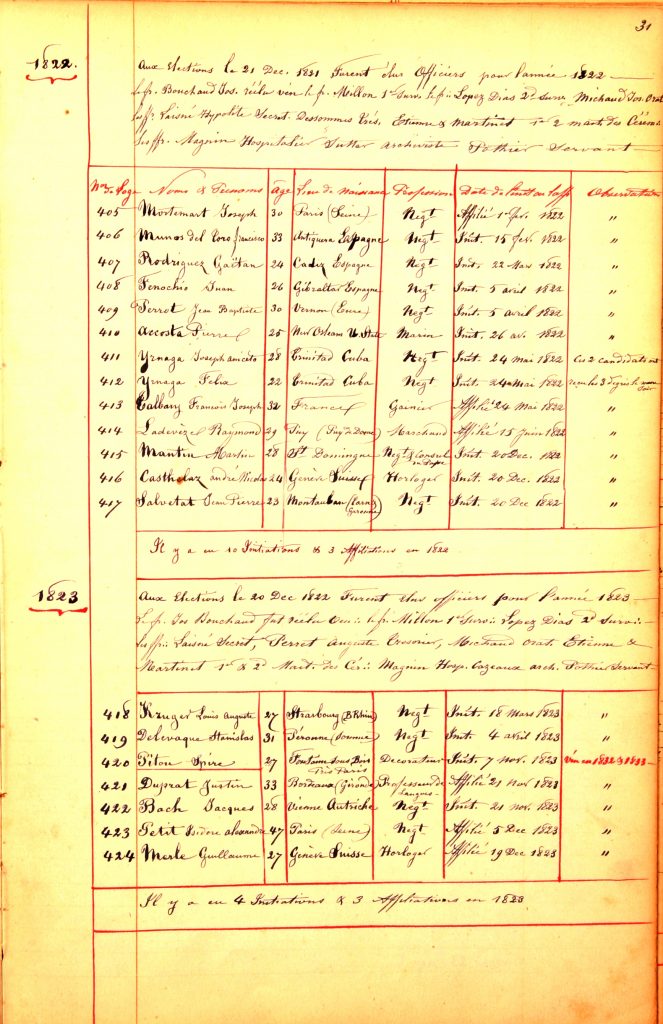 31
1822.
Aux Elections le 21 Dec. 1821 Furent élus Officiers pour l'année 1822
Le fr. Bouchaud Jos. réélu vén. le fr. Millon 1er Surv. le fr. Lopez Dias 2d surv. Michaud Jos. Orat
Les ffr. Laisné Hypolite Secret. Dessommes Trés. Etienne & Martinet 1er 2 mait. des Cérém.
Les ffr. Magnin Hospitalier Sutter archiviste Pothier Servant
Nos de Page Noms & Prénoms Age Lieu de naissance Profession Date de l'init. ou l'aff. Observations
405 Mortemart Joseph 30 Paris (Seine) Negt Affilié 1er fév. 1822 "
406 Munos del Toro francisco 33 Antiquera Espagne Negt Init. 15 fév. 1822 "
407 Rodriguez Gaëtan 24 Cadiz Espagne Negt Init. 22 Mars 1822 "
408 Fenochio Juan 26 Gibraltar Espagne Negt Init. 5 avril 1822 "
409 Perrot Jean Baptiste 30 Vernon (Eure) Negt Init. 5 avril 1822 "
410 Accosta Pierre 25 New Orleans U. State Marin Init. 26 av. 1822 "
411 Yznaga Joseph aniceto 28 Trinitad Cuba Negt Init. 24 mai 1822 Ces 2 candidats ont
412 Yznaga Felix 22 Trinitad Cuba Negt Init. 24 mai 1822 reçu les 3 degrés le même soir
413 Talbany François Joseph 32 France Gainier Affilié 24 Mai 1822 "
414 Ladevèze Raymond 29 Puy (Puy de Dome) Marchand Affilié 15 juin 1822 "
415 Mantin Martin 28 St Domingue Negt & Consul Init. 20 Dec. 1822 "
416 Castholaz andré Nicolas 24 Genève Suisse Horloger Init. 20 Dec. 1822 "
417 Salvetat Jean Pierre 23 Montauban (Tarn & Garonne) Negt Init. 20 Dec 1822 "
Il y a eu 10 Initiations & 3 Affiliations en 1822
1823
Aux Elections le 20 Dec 1822 Furent élus officiers pour l'année 1823
Le fr. Jos Bouchaud fut réélu Ven.: le fr. Millon 1er Surv.: Lopez Dias 2d surv.:
Les ffr.: Laisné Secret, Perret Auguste Tresorier, Michaud orat. Etienne &
Martinet 1er & 2d Mait. des Cér.: Magnin Hosp. Cazeaux arch. Pothier Servant
418 Kruger Louis Auguste 27 Strasbourg (B Rhin) Negt Init. 18 Mars 1823 "
419 Delevaque Stanislas 31 Péronne (Somme) Negt Init. 4 avril 1823 "
420 Piton Spire 27 Fontaine sous Bois Près Paris Decorateur Init. 7 nov. 1823 Vén en 1832 & 1833
421 Duprat Justin 33 Bordeaux (Gironde) Professeur de Langues Affilié 21 nov 1823 "
422 Bach Jacques 28 Vienne Autriche Negt Init. 21 nov. 1823 "
423 Petit Isidore alexandre 47 Paris (Seine) Negt Affilié 5 Dec 1823 "
424 Merle Guillaume 27 Genève Suisse Horloger Affilié 19 Dec 1823 "
Il y a eu 4 Initiations & 3 Affiliations en 1823